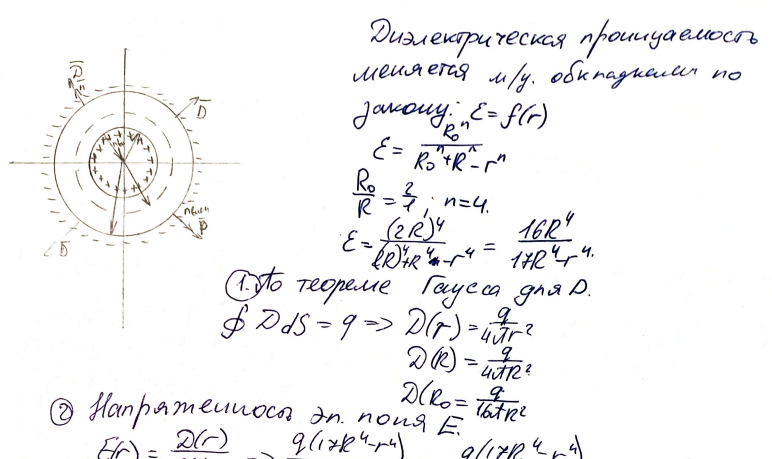 Диэлектрическая проницаемость
меняется м/у. обкладками по
закону: ε = f(r)
ε = R₀ⁿ / (R₀ⁿ + Rⁿ - rⁿ)
R₀/R = 2/1; n=4.
ε = (2R)⁴ / ((2R)⁴ + R⁴ - r⁴) = 16R⁴ / (17R⁴ - r⁴).
D̅
n
D̅
D̅
① По теореме Гаусса для D.
∮ D dS = q => D(r) = q / 4πr²
D(R) = q / 4πR²
D(R₀ = q / 16πR²
② Напряженность эл. поля E.
E(r) = D(r) => q(17R⁴ - r⁴) q(17R⁴ - r⁴)